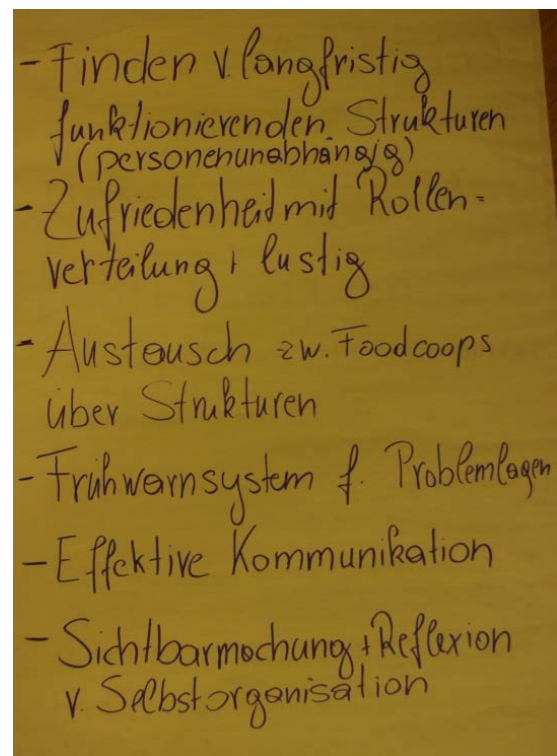 - Finden v. langfristig
funktionierenden Strukturen
(personenunabhängig)
- Zufriedenheit mit Rollen-
verteilung + lustig
- Austausch zw. Foodcoops
über Strukturen
- Frühwarnsystem f. Problemlagen
- Effektive Kommunikation
- Sichtbarmachung + Reflexion
v. Selbstorganisation